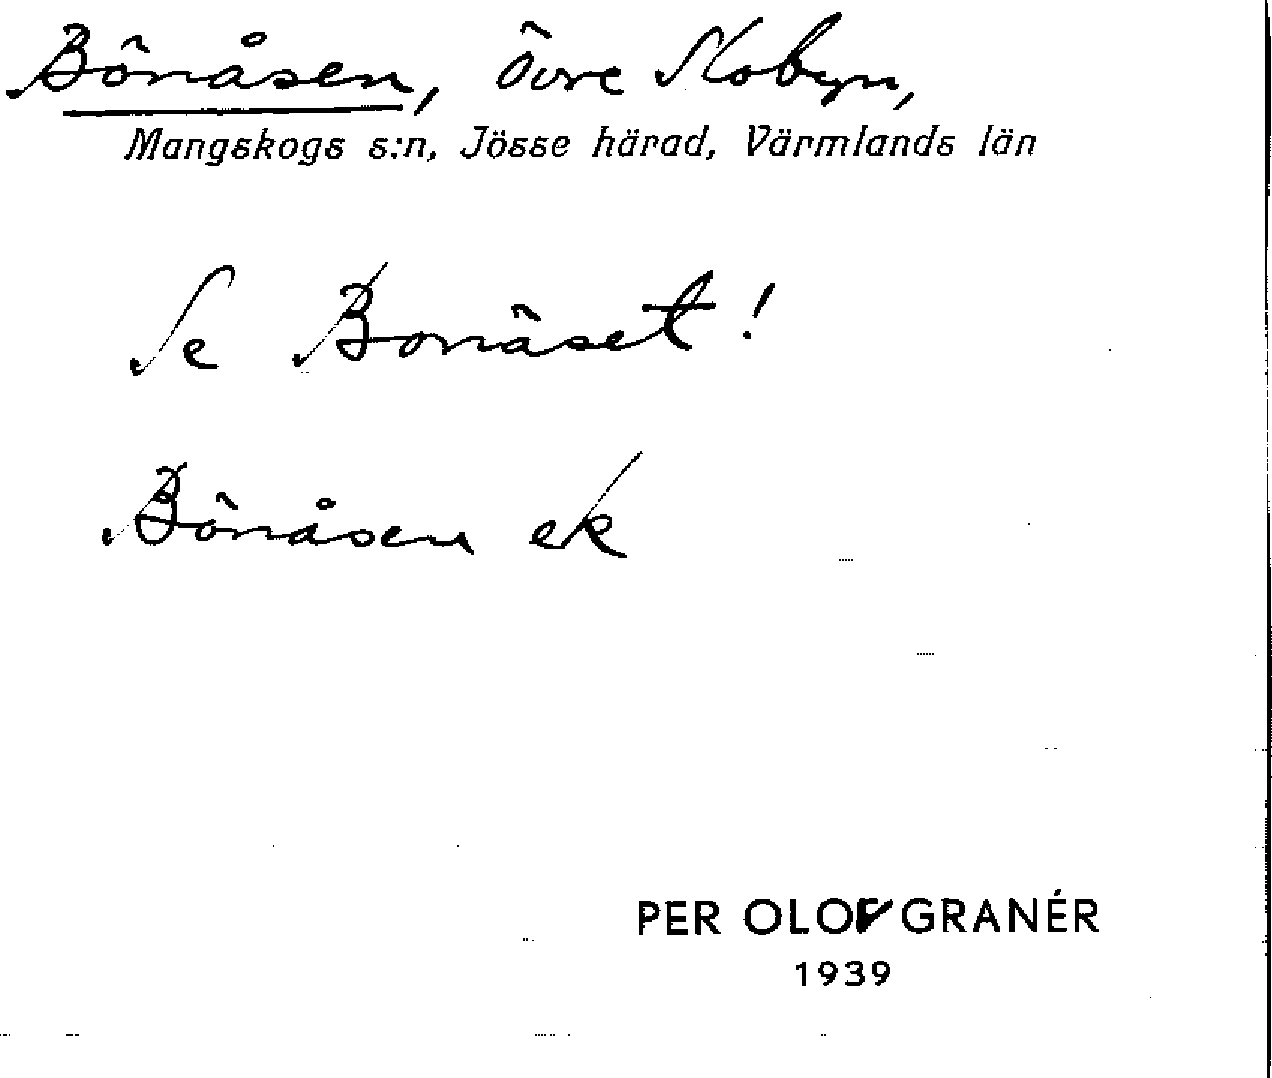 Bönåsen, Övre Skobyn,
Mangskogs s:n, Jösse härad, Värmlands län
Se Bonäset!
Bönåsen ek
PER OLOF GRANÉR
1939